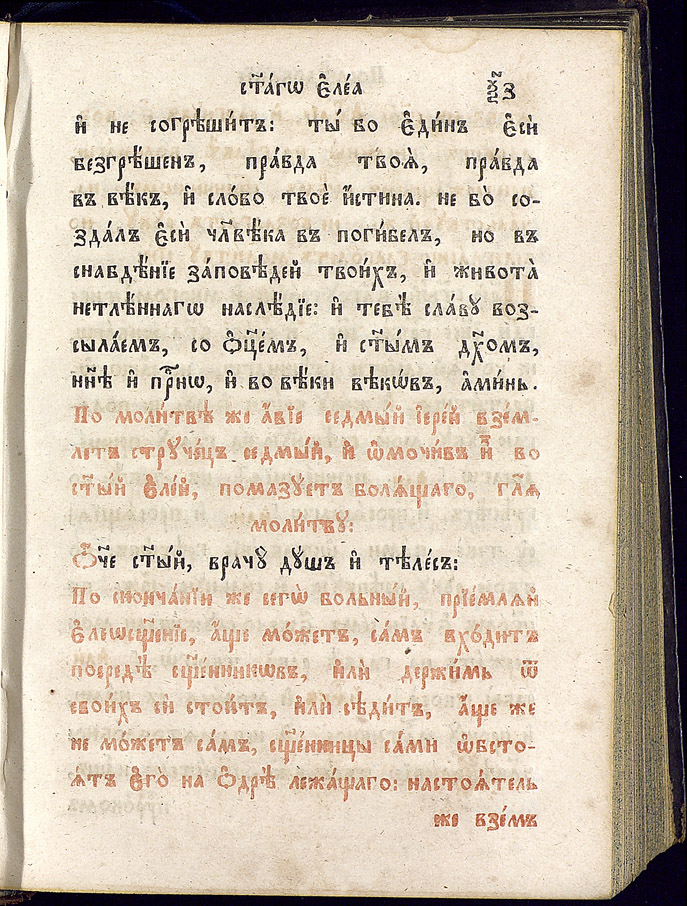 ст҃а́гѡ є҆ле́а рч҃з
и҆ не согрѣши́тъ: ты́ бо є҆ди́нъ є҆сѝ
безгрѣ́шенъ, пра́вда твоѧ̀, пра́вда
въ вѣ́къ, и҆ сло́во твоѐ и҆́стина. не бо̀ со-
зда́лъ є҆сѝ чл҃вѣ́ка въ поги́бель, но въ
снабдѣ́нїе за́повѣдей твои́хъ, и҆ живота̀
нетлѣ́ннагѡ наслѣ́дїе: и҆ тебѣ̀ сла́вꙋ воз-
сыла́емъ, со ѻ҆ц҃е́мъ, и҆ ст҃ы́мъ дх҃омъ,
нн҃ѣ и҆ пр҃нѡ, и҆ во вѣ́ки вѣкѡ́въ, а҆ми́нь.
По моли́твѣ же а҆́бїе седмы́й і҆ере́й взе́м-
летъ стрꙋче́цъ седмы́й, и҆ ѡ҆мочи́въ и҆̀ во
ст҃ы́й є҆ле́й, помазꙋетъ болѧ́щаго, гл҃ѧ
моли́твꙋ:
Ѻ҆́ч҃е ст҃ы́й, врачꙋ̀ дꙋ́шъ и҆ тѣле́съ:
По сконча́нїи же сегѡ̀ больны́й, прїе́млѧй
є҆леѡсщ҃е́нїе, а҆́ще мо́жетъ, са́мъ вхо́дитъ
посредѣ̀ сщ҃е́нникѡвъ, и҆лѝ держи́мь ѿ
свои́хъ сѝ стои́тъ, и҆лѝ сѣди́тъ, а҆́ще же
не мо́жетъ са́мъ, сщ҃е́нницы са́ми ѡ҆бсто-
ѧ́тъ є҆го̀ на ѻ҆дрѣ̀ лежа́щаго: настоѧ́тель
же взе́мъ